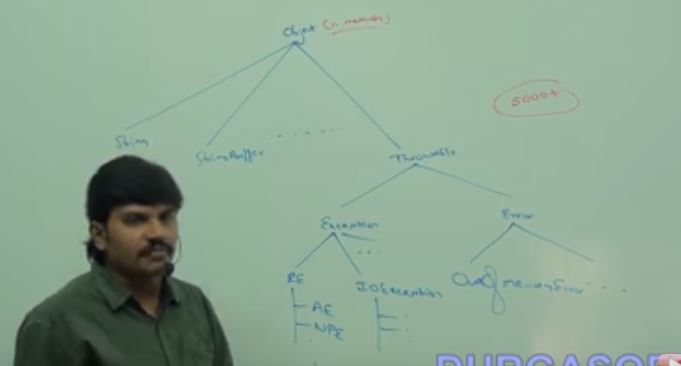 Object (11 methods)
5000+
String
StringBuffer
Throwable
Exception
Error
RE
IOException
OutofmemoryError
AE
NPE
DURGASOF